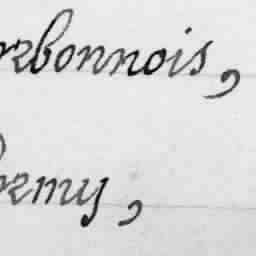 rbonnois,
rmy,